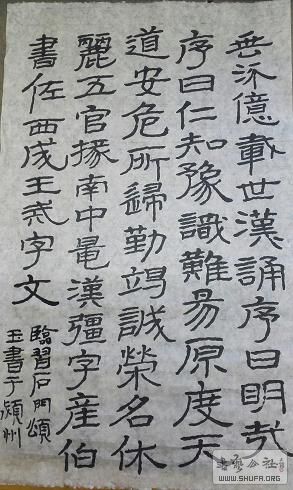 垂流億載世漢誦序曰明哉
序曰仁知豫識難易原度天
道安危所歸勤竭誠榮名休
麗五官掾南中鼂漢彊字產伯
書佐西成王戒字文
臨習石門頌
玉書于潁州
书艺公社
WWW.SHUFA.ORG